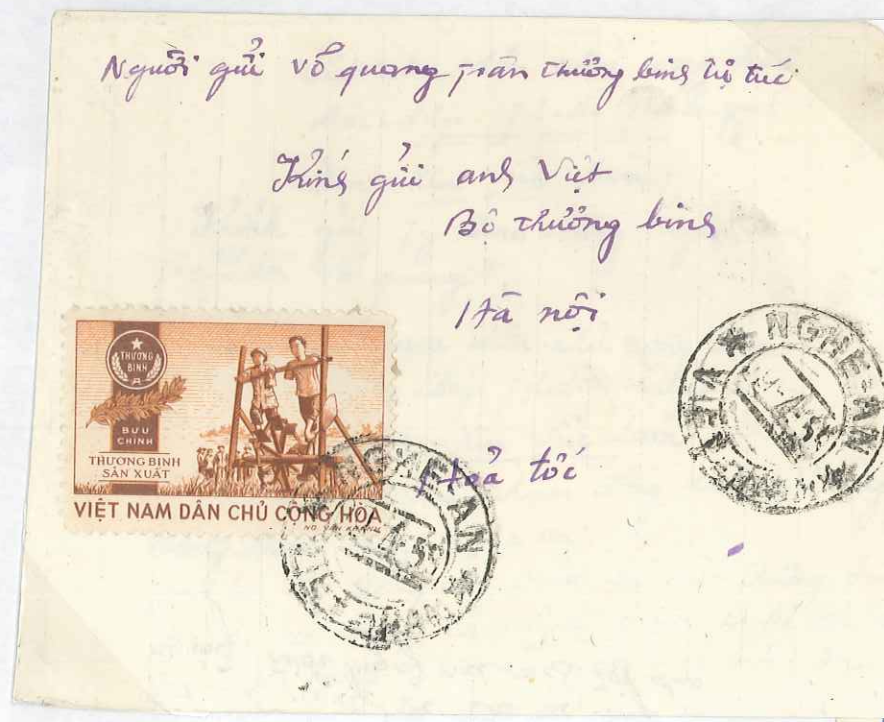 Người gửi Võ quang trân thưởng binh tự túc
Kính gửi anh Việt
Bộ thưởng binh
Hà nội
Hoả tốc
THƯƠNG
BINH
BƯU
CHÍNH
THƯƠNG BINH
SẢN XUẤT
VIỆT NAM DÂN CHỦ CỘNG HÒA
NGHE-AN
NGHE-AN